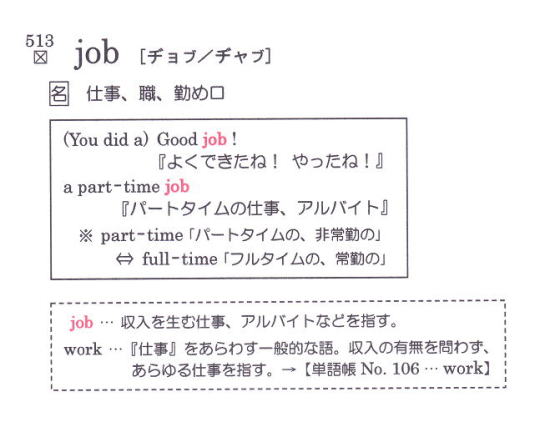 513
☒ job [ヂョブ／ヂャブ]
名 仕事、職、勤め口
(You did a) Good job !
『よくできたね！ やったね！』
a part-time job
『パートタイムの仕事、アルバイト』
※ part-time「パートタイムの、非常勤の」
⇔ full-time「フルタイムの、常勤の」
job … 収入を生む仕事、アルバイトなどを指す。
work …『仕事』をあらわす一般的な語。収入の有無を問わず、
あらゆる仕事を指す。→【単語帳 No. 106 … work】